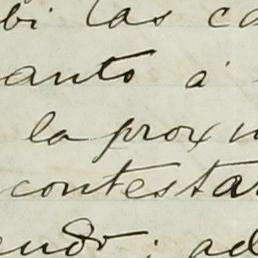 bi las ca
anto á
la prox
contestar
endo; ad